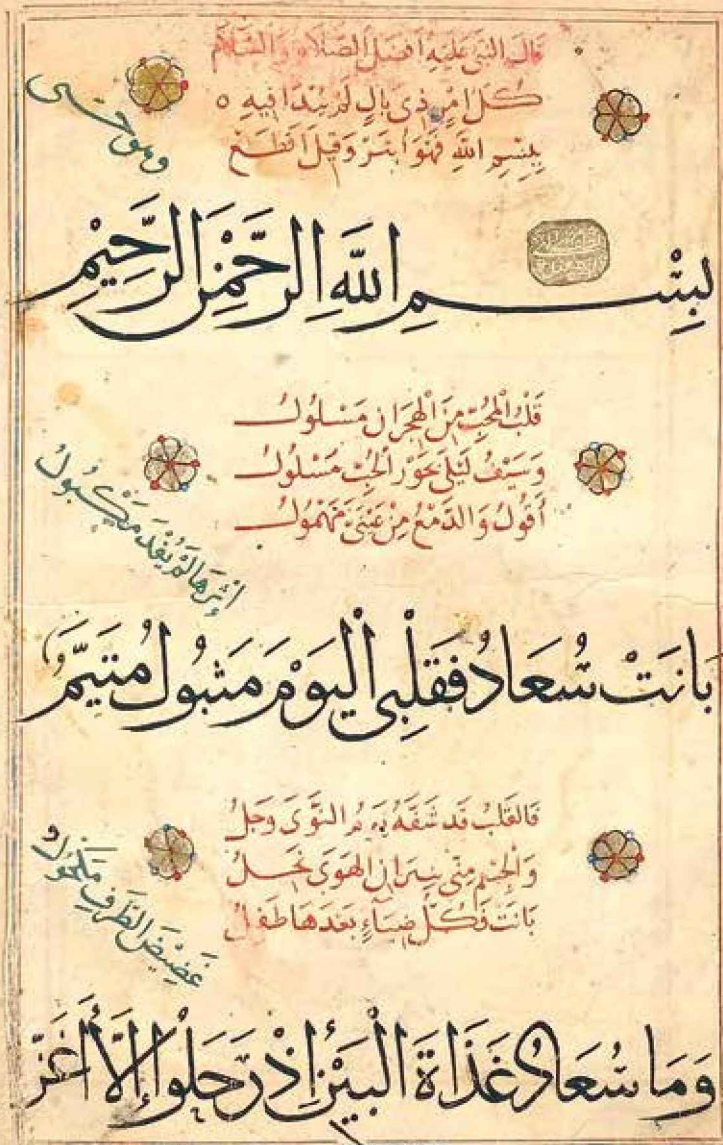 قَالَ النَّبِيُّ عَلَيْهِ أَفْضَلُ الصَّلَاةِ وَالسَّلَامِ
كُلُّ أَمْرٍ ذِي بَالٍ لَمْ يُبْدَأْ فِيهِ
بِبِسْمِ اللَّهِ فَهُوَ أَبْتَرُ وَقِيلَ أَقْطَعُ
بِسْمِ اللَّهِ الرَّحْمَنِ الرَّحِيمِ
قَلْبُ الْمُحِبِّ مِنَ الْهِجْرَانِ مَسْلُوكُ
وَسَيْفُ لَيْلَى بِجَوْرِ الْحُبِّ مَسْلُولُ
أَقُولُ وَالدَّمْعُ مِنْ عَيْنَيَّ مَهْمُولُ
بَانَتْ سُعَادُ فَقَلْبِي الْيَوْمَ مَتْبُولُ مُتَيَّمٌ
إِثْرَهَا لَمْ يُفْدَ مَكْبُولُ
فَالْقَلْبُ قَدْ شَفَّهُ يَوْمَ النَّوَى وَجَلُ
وَالْجِسْمُ مِنِّي بِنِيرَانِ الْهَوَى نَحِلُ
بَانَتْ فَكُلُّ ضِيَاءٍ بَعْدَهَا طَفَلُ
وَمَا سُعَادُ غَدَاةَ الْبَيْنِ إِذْ رَحَلُوا إِلَّا أَغَنُّ
غَضِيضُ الطَّرْفِ مَكْحُولُ